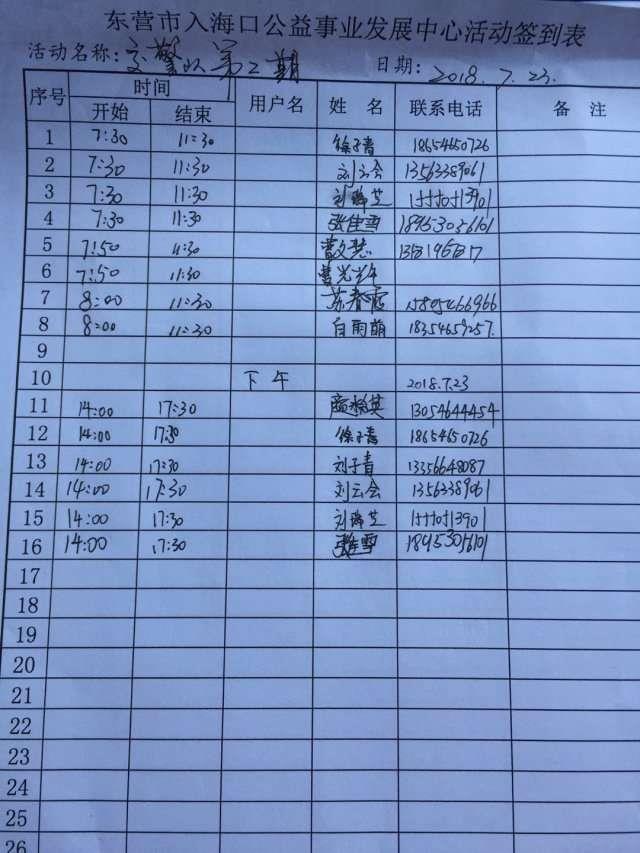 东营市入海口公益事业发展中心活动签到表
活动名称: 交警队第2期 日期: 2018.7.23.
序号 时间 用户名 姓 名 联系电话 备 注
开始 结束
1 7:30 11:30 徐子青 18654650726
2 7:30 11:30 刘云会 13563389061
3 7:30 11:30 刘 芝
4 7:30 11:30 张佳雪
5 7:50 11:30
6 7:50 11:30
7 8:00 11:30 苏春霞 15805466966
8 8:00 11:30 白雨萌 18354659257.
9
10 下午 2018.7.23
11 14:00 17:30 13054644454
12 14:00 17:30 徐子青 18654650726
13 14:00 17:30 刘子青 13356648087
14 14:00 17:30 刘云会 13563389061
15 14:00 17:30 刘 芝
16 14:00 17:30 张佳雪
17
18
19
20
21
22
23
24
25
26